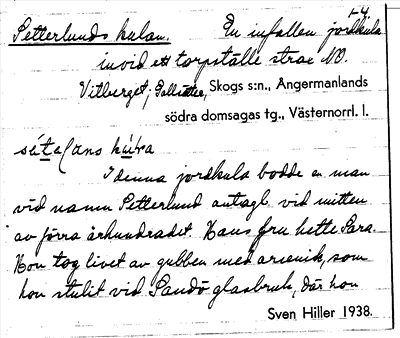 1-4
Petterlunds kulan. En infallen jordkula
invid ett torpställe strax NO.
Vitberget, Skogs s:n., Ångermanlands
södra domsagas tg., Västernorrl. l.
I denna jordkula bodde en man
vid namn Petterlund antagl. vid mitten
av förra århundradet. Hans fru hette Sara.
Hon tog livet av gubben med arsenik, som
hon stulit vid Sandö glasbruk, där hon
Sven Hiller 1938.